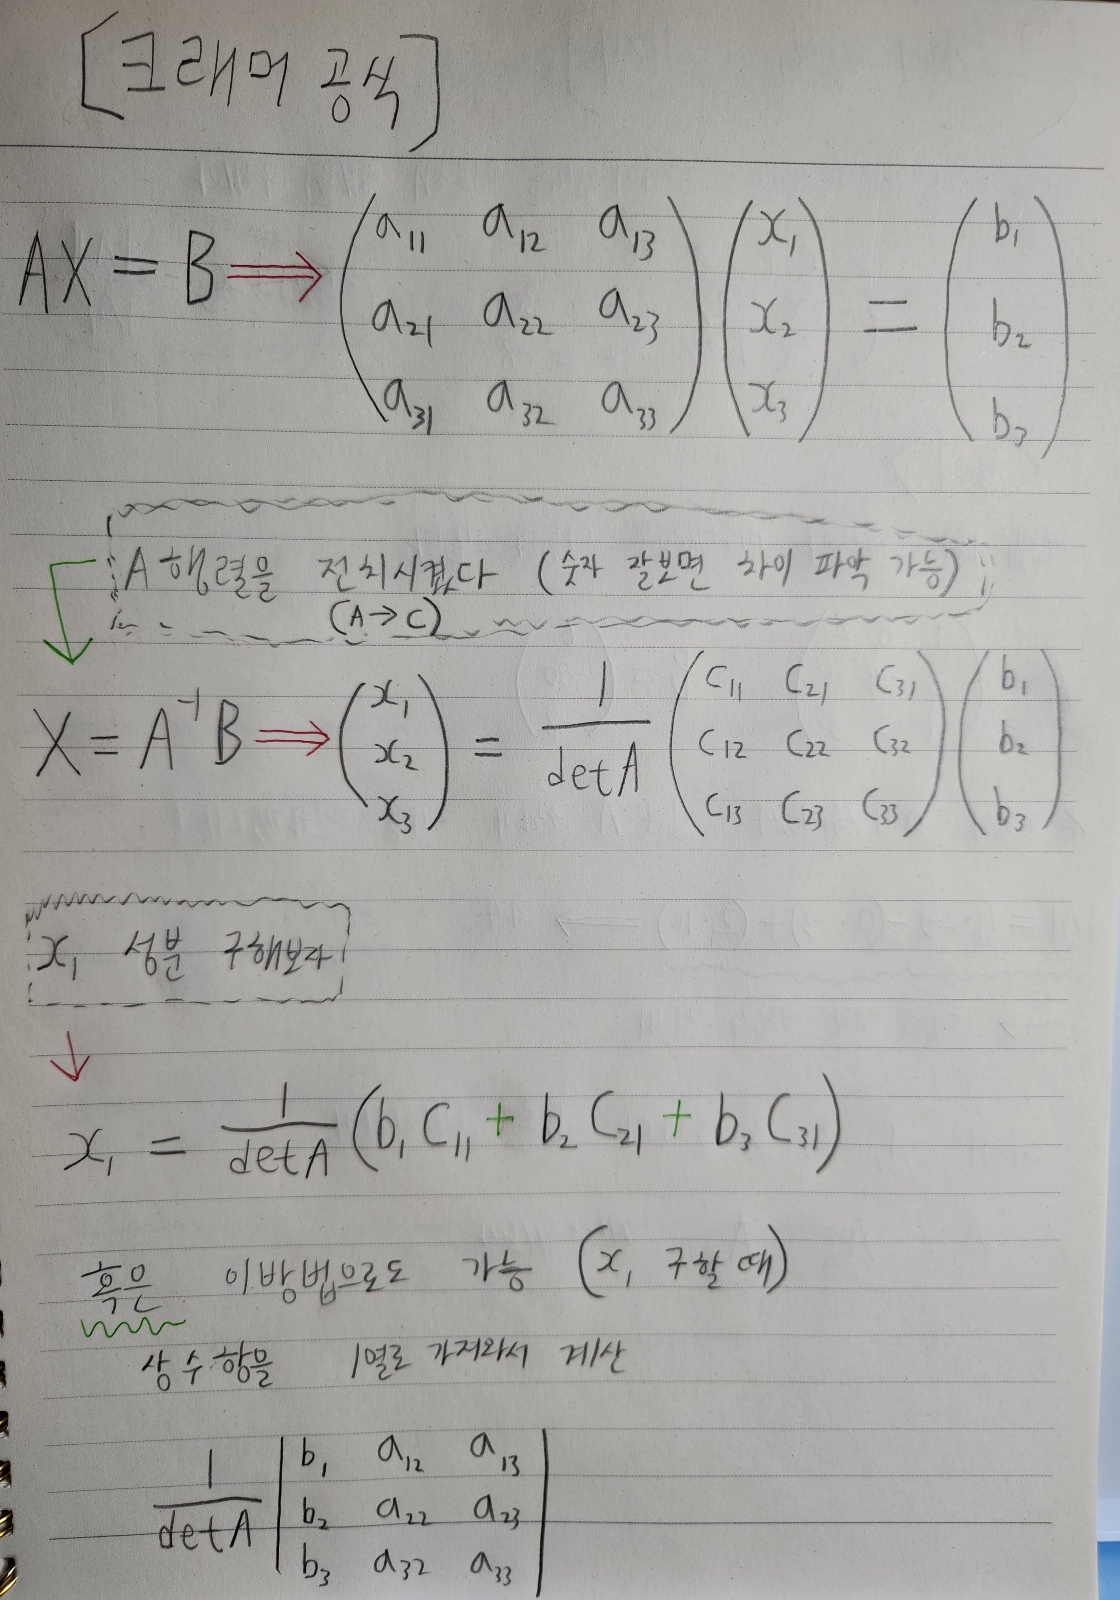 [크래머 공식]
AX = B ⟹ (a₁₁ a₁₂ a₁₃) (x₁) = (b₁)
(a₂₁ a₂₂ a₂₃) (x₂) (b₂)
(a₃₁ a₃₂ a₃₃) (x₃) (b₃)
A행렬을 전치시켰다 (숫자 잘보면 차이 파악 가능)
(A→C)
X = A⁻¹B ⟹ (x₁) = 1/detA (C₁₁ C₂₁ C₃₁) (b₁)
(x₂) (C₁₂ C₂₂ C₃₂) (b₂)
(x₃) (C₁₃ C₂₃ C₃₃) (b₃)
x₁ 성분 구해보자
↓
x₁ = 1/detA (b₁C₁₁ + b₂C₂₁ + b₃C₃₁)
혹은 이방법으로도 가능 (x₁ 구할 때)
상수항을 1열로 가져와서 계산
1/detA |b₁ a₁₂ a₁₃|
|b₂ a₂₂ a₂₃|
|b₃ a₃₂ a₃₃|